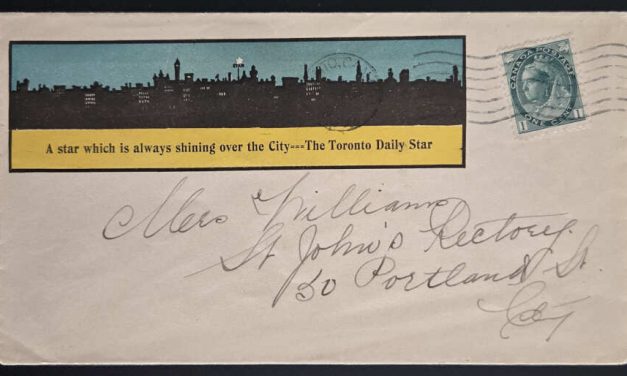 A star which is always shining over the City---The Toronto Daily Star
CANADA POSTAGE
1 ONE CENT 1
Mrs Williams
St John's Rectory.
50 Portland St.
City